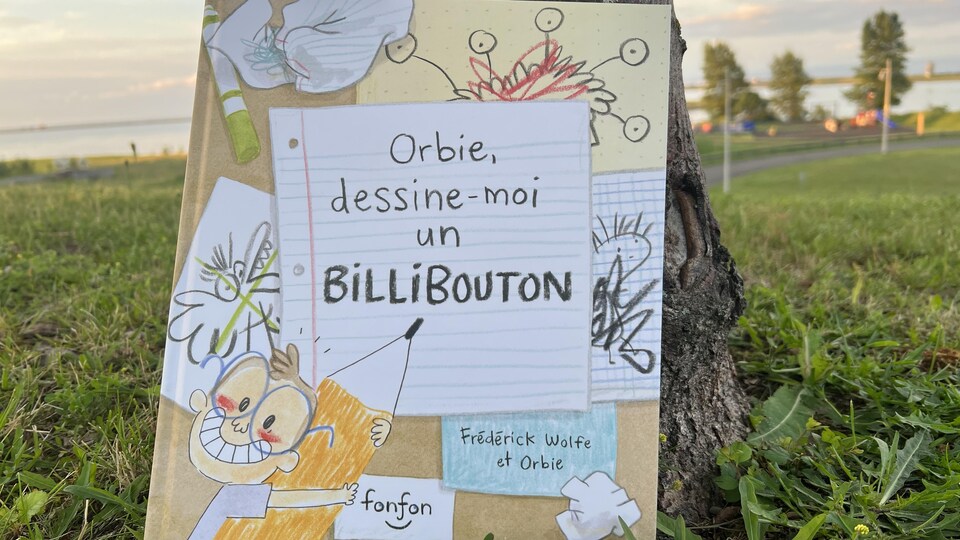 Orbie,
dessine-moi
un
BiLLiBOUTON
Frédérick Wolfe
et Orbie
fonfon